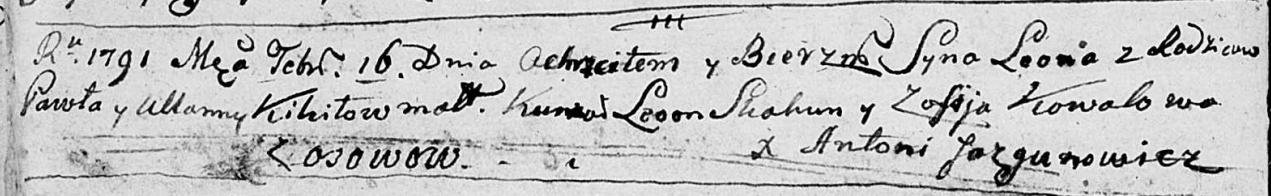 Ru. 1791 Mca Febr. 16. Dnia Ochrzcitem y Bierzm. Syna Leona z Rodzicow
Pawła y Allanny Kikitow matt. Kumowie Leoon Skakun y Zofija Kowalowa
Zosowow. x Antoni Jazgunowicz